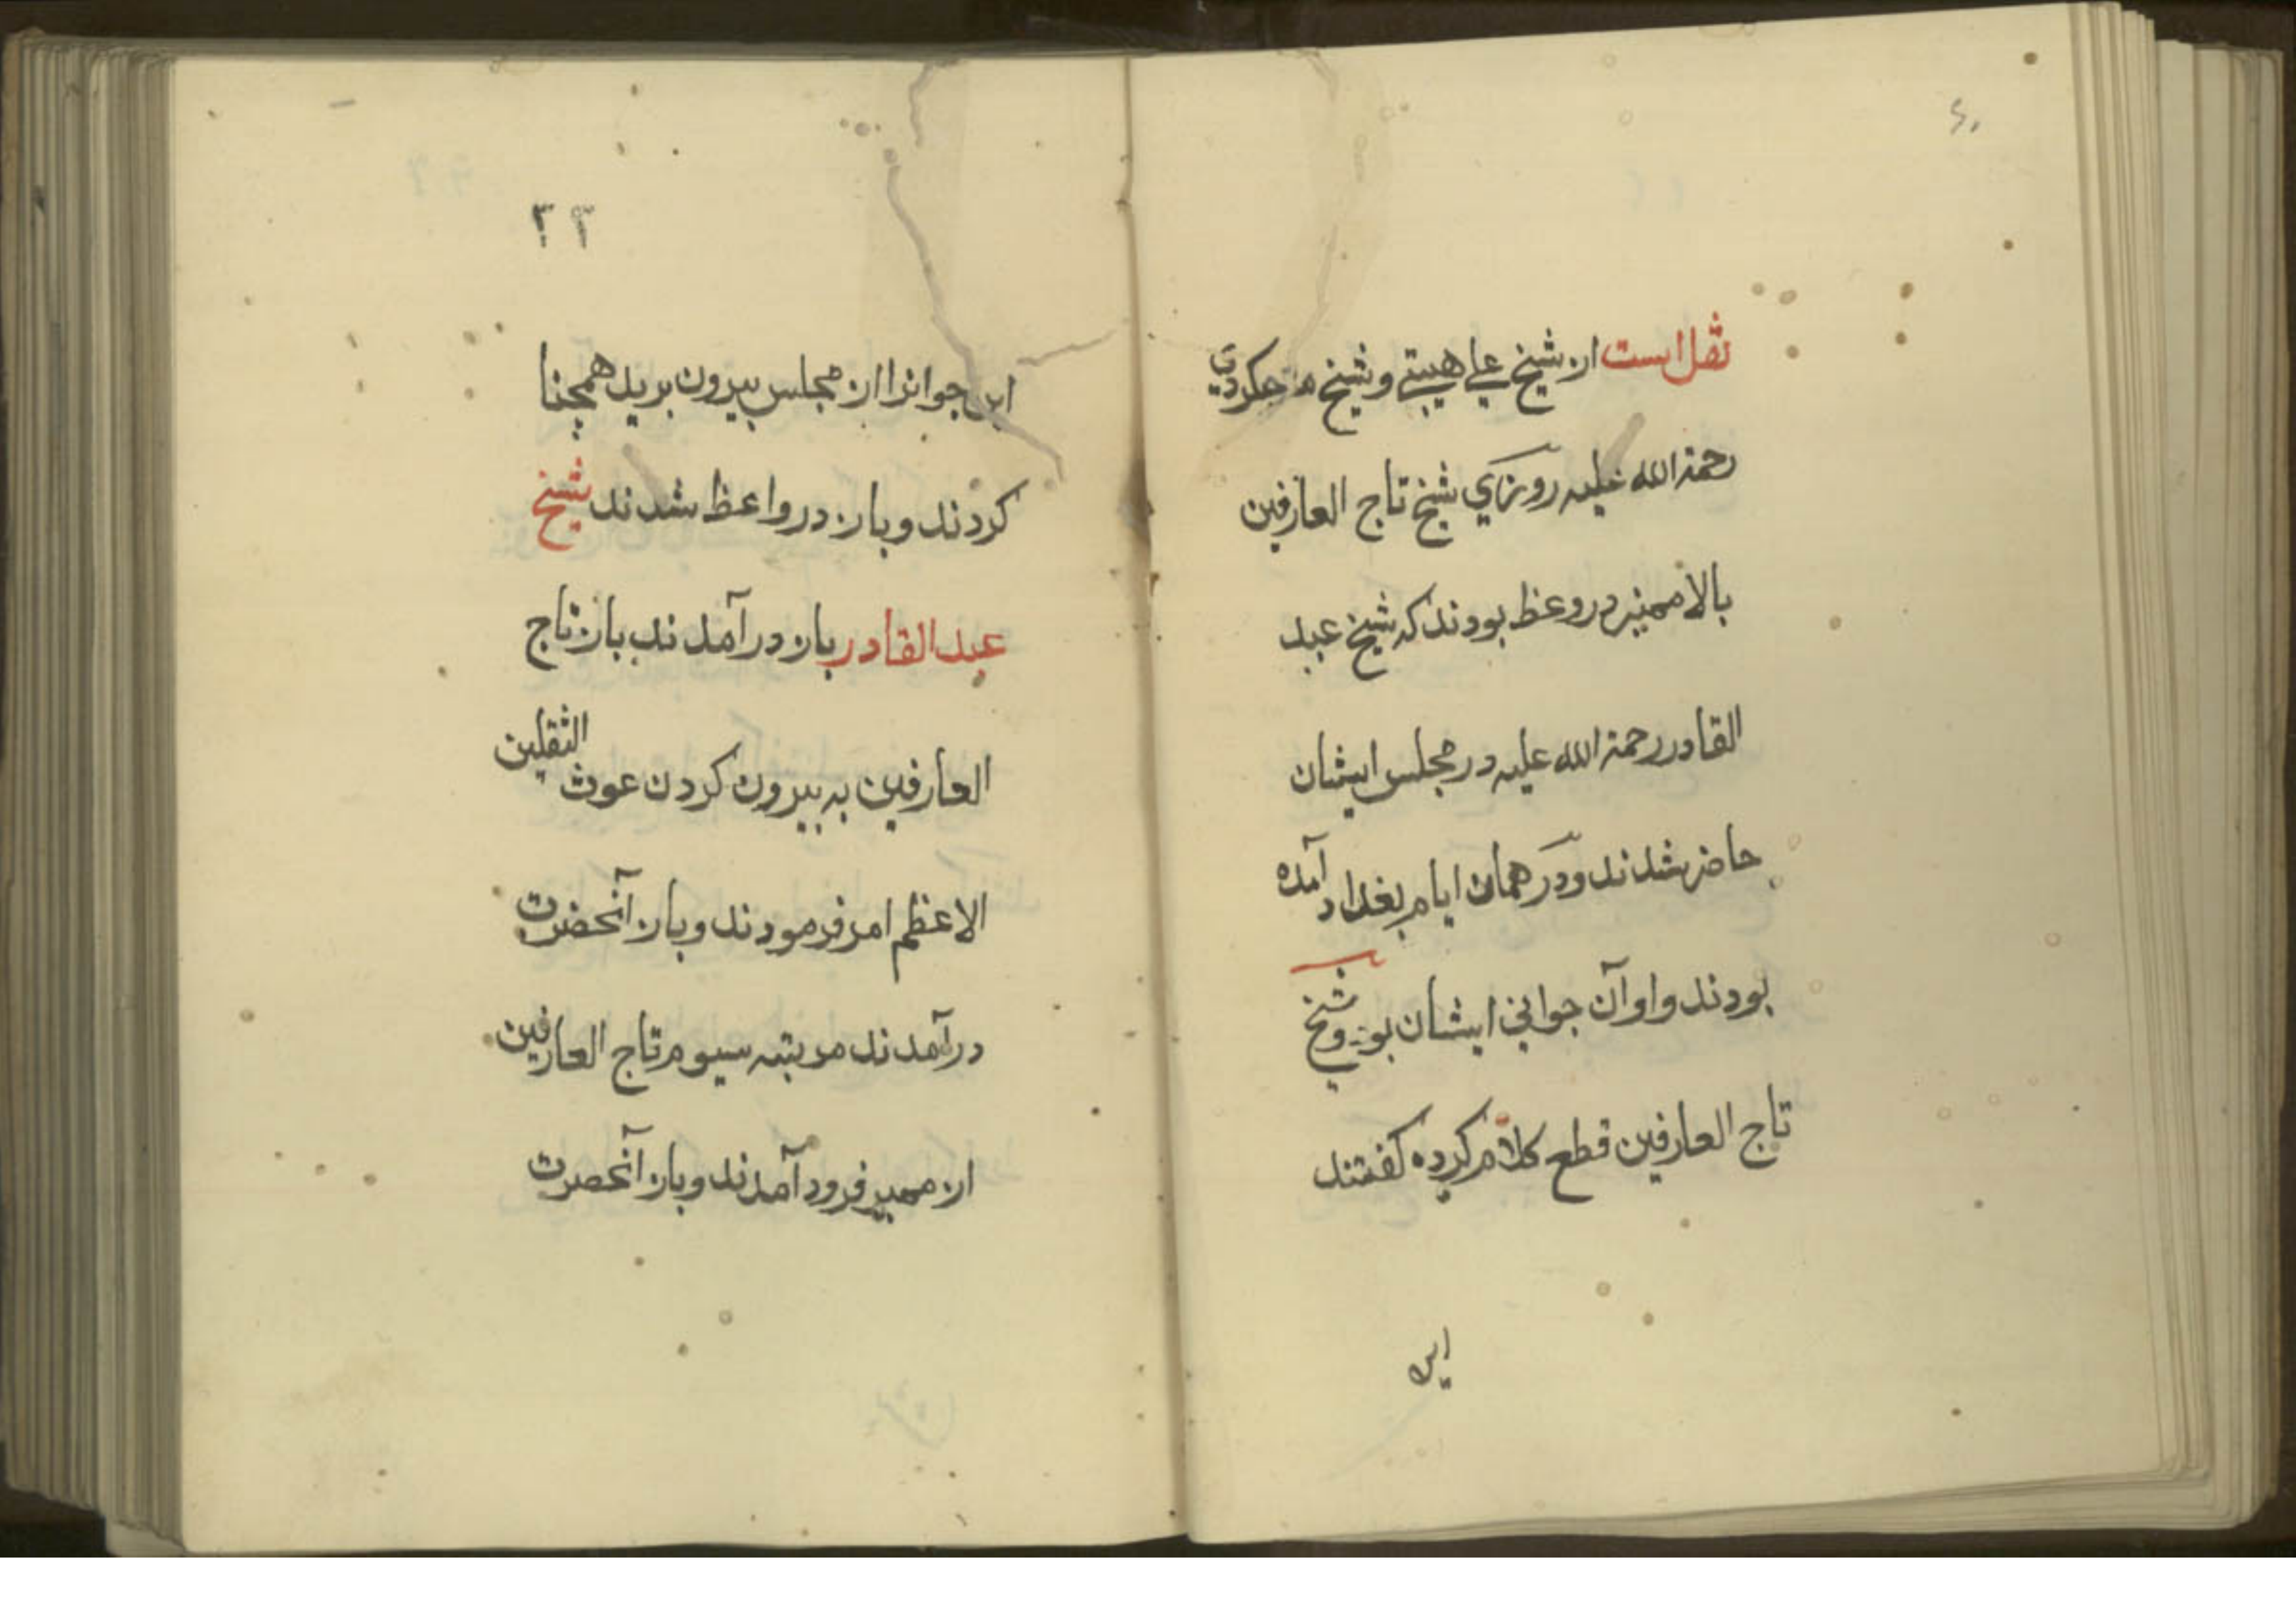 نقل است از شیخ علی هیتی و شیخ
رحمة الله علیه روزی شیخ تاج العارفین
بالا ممنبر در وعظ بودند که شیخ عبد
القادر رحمة الله علیه در مجلس ایشان
حاضر شدند و در همان ایام بغداد آمده
بودند و اوآن جوانی ایشان بود و شیخ
تاج العارفین قطع کلام کرده کفتند
این
۲۲
این جوانرا از مجلس بیرون برید همچنا
کردند و باز در واعظ شدند شیخ
عبد القادر باز در آمدند باز تاج
العارفین به بیرون کردن عوث الثقلین
الاعظم امر فرمودند و باز آنحضرت
در آمدند مربتبه سیوم تاج العارفین
از ممبر فرود آمدند و باز آنحضرت